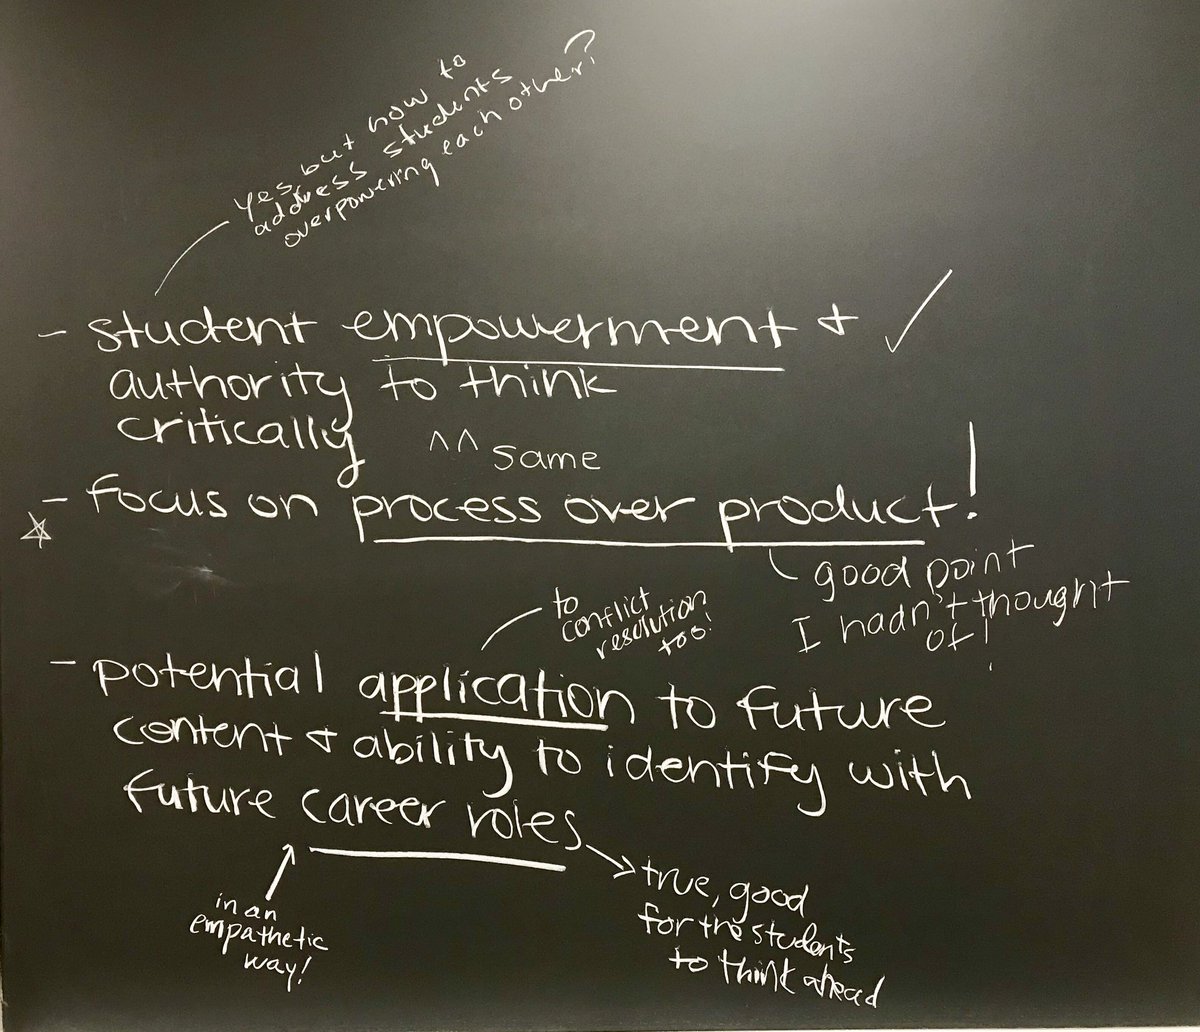 yes, but how to
address students
overpowering each other?
- student empowerment + ✓
authority to think
critically
^^ same
- focus on process over product!
☆
good point
I hadn't thought
of!
to
conflict
resolution
too!
- potential application to future
content + ability to identify with
future career roles
in an
empathetic
way!
true, good
for the students
to think ahead